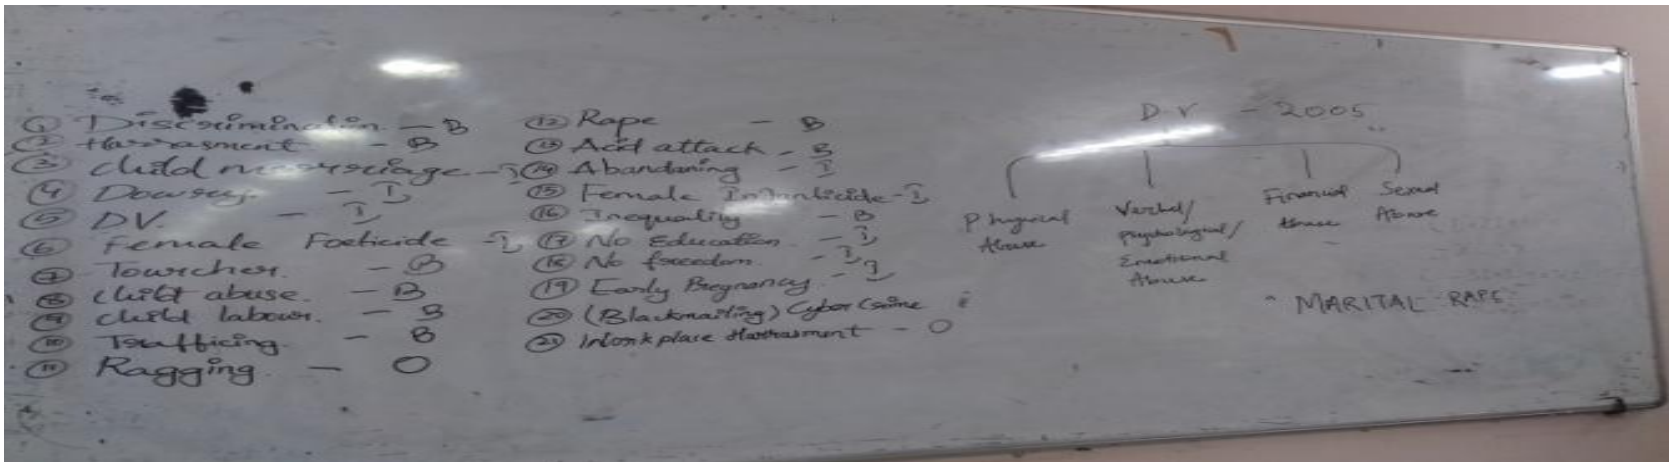 ① Discrimination - B
② Harrasment - B
③ Child marriage - I
④ Dowry - I
⑤ DV. - I
⑥ Female Foeticide - I
⑦ Tourcher. - B
⑧ child abuse. - B
⑨ child labour. - B
⑩ Trafficing. - B
⑪ Ragging - O
⑫ Rape - B
⑬ Acid attack - B
⑭ Abandaning - I
⑮ Female Infanticide - I
⑯ Inequality - B
⑰ No Education - I
⑱ No freedom - I
⑲ Early Pregnancy - I
⑳ (Blackmailing) Cyber Crime
㉑ Workplace Harrasment - O
D.V - 2005
Physical
Abuse
Verbal/
Psychological/
Emotional
Abuse
Financial
Abuse
Sexual
Abuse
MARITAL RAPE